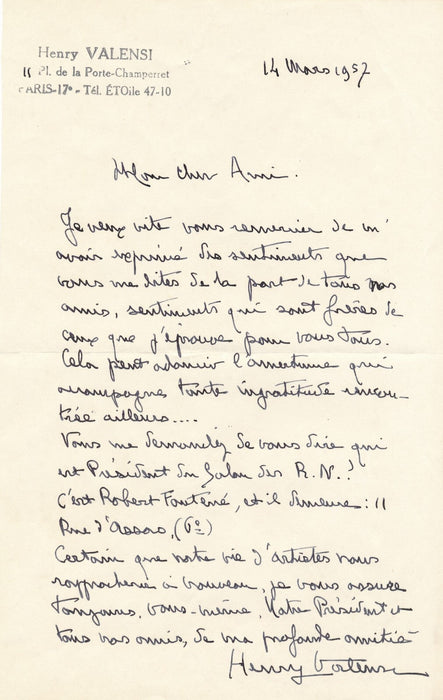 Henry VALENSI
11 Pl. de la Porte-Champerret
PARIS-17e - Tél. ÉTOile 47-10
14 Mars 1957
Mon cher Ami.
Je veux vite vous remercier de m'
avoir exprimé des sentiments que
vous me dites de la part de tous nos
amis, sentiments qui sont frères de
ceux que j'éprouve pour vous tous.
Cela peut adoucir l'amertume qui
accompagne toute ingratitude rencon-
trée ailleurs....
Vous me demandez de vous dire qui
est Président du Salon des R.N..?
C'est Robert Fontené, et il demeure : 11
Rue d'Assas, (6e)
Certain que notre vie d'artistes nous
rapprochera à nouveau, je vous assure
toujours, vous-même, Votre Président et
tous vos amis, de ma profonde amitié
Henry Valensi